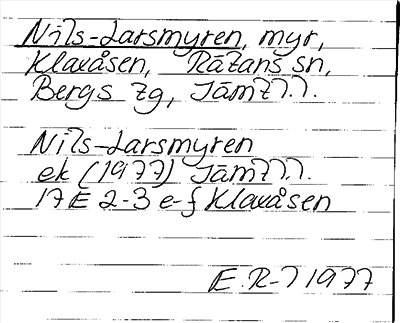 Nils-Larsmyren, myr,
Klaxåsen, Rätans sn,
Bergs tg, Jämtl.
Nils-Larsmyren
ek (1977) Jämtl.
17E 2-3 e-f Klaxåsen
E. R-l 1977